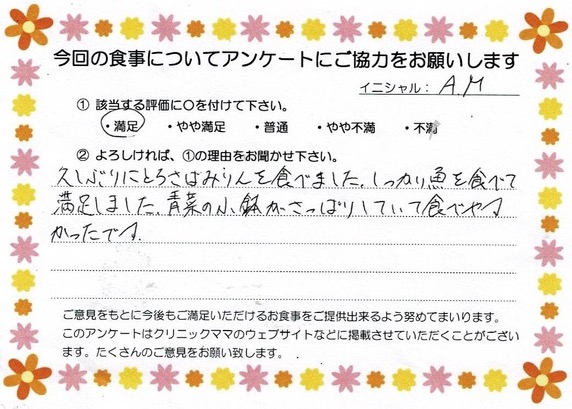 今回の食事についてアンケートにご協力をお願いします
イニシャル： A.M
① 該当する評価に○を付けて下さい。
・満足 ・やや満足 ・普通 ・やや不満 ・不満
② よろしければ、①の理由をお聞かせ下さい。
久しぶりにとろさばみりんを食べました。しっかり魚を食べて
満足しました。青菜の小鉢がさっぱりしていて食べやす
かったです。
ご意見をもとに今後もご満足いただけるお食事をご提供出来るよう努めてまいります。
このアンケートはクリニックママのウェブサイトなどに掲載させていただくことがござい
ます。たくさんのご意見をお願い致します。